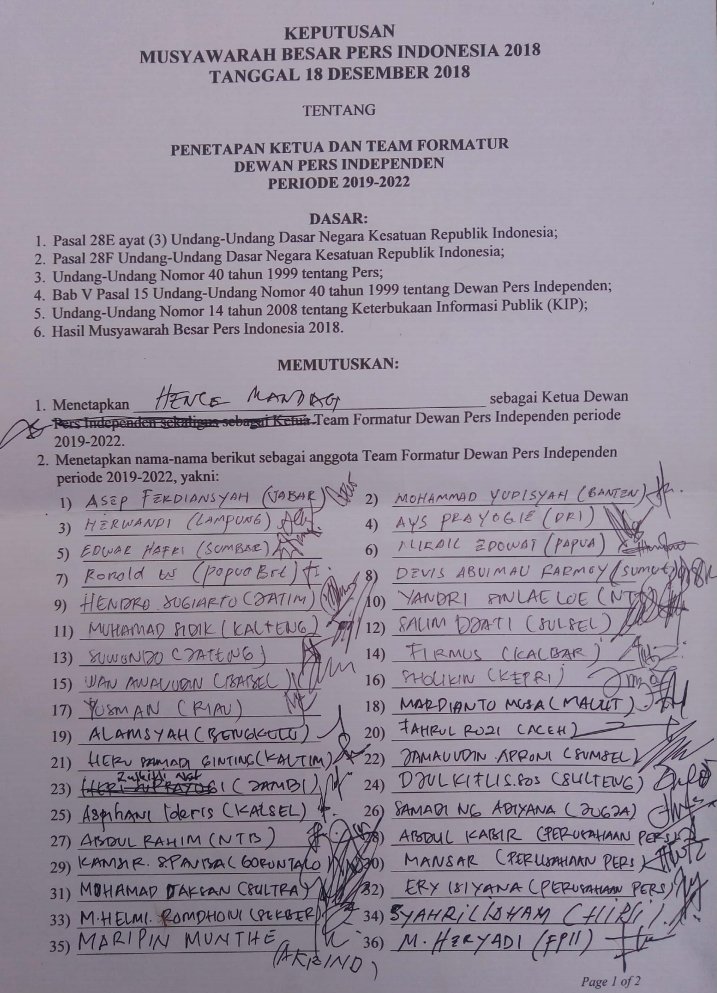 KEPUTUSAN
MUSYAWARAH BESAR PERS INDONESIA 2018
TANGGAL 18 DESEMBER 2018
TENTANG
PENETAPAN KETUA DAN TEAM FORMATUR
DEWAN PERS INDEPENDEN
PERIODE 2019-2022
DASAR:
1. Pasal 28E ayat (3) Undang-Undang Dasar Negara Kesatuan Republik Indonesia;
2. Pasal 28F Undang-Undang Dasar Negara Kesatuan Republik Indonesia;
3. Undang-Undang Nomor 40 tahun 1999 tentang Pers;
4. Bab V Pasal 15 Undang-Undang Nomor 40 tahun 1999 tentang Dewan Pers Independen;
5. Undang-Undang Nomor 14 tahun 2008 tentang Keterbukaan Informasi Publik (KIP);
6. Hasil Musyawarah Besar Pers Indonesia 2018.
MEMUTUSKAN:
1. Menetapkan HENCE MANDAGI sebagai Ketua Dewan
Pers Independen sekaligus sebagai Ketua Team Formatur Dewan Pers Independen periode
2019-2022.
2. Menetapkan nama-nama berikut sebagai anggota Team Formatur Dewan Pers Independen
periode 2019-2022, yakni:
1) ASEP FERDIANSYAH (JABAR) 2) MOHAMMAD YUDISYAH (BANTEN)
3) HERWANDI (LAMPUNG) 4) AYS PRAYOGIE (DKI)
5) EDWAR HAFRI (SUMBAR) 6) MIKAIL EDOWAI (PAPUA)
7) Ronald W (Papua Brt) 8) DEVIS ABUIMAU KARMOY (SUMUT)
9) HENDRO SUGIARTO (JATIM) 10) YANDRI (NTT)
11) MUHAMAD SIDIK (KALTENG) 12) SALIM DJATI (SULSEL)
13) SUWONDO (JATENG) 14) FIRMUS (KALBAR)
15) WAN AWALUDIN (BABEL) 16) SHOLIKIN (KEPRI)
17) YUSMAN (RIAU) 18) MARDIANTO MUSA (MALUT)
19) ALAMSYAH (BENGKULU) 20) FAHRUL ROZI (ACEH)
21) HERU GINTING (KALTIM) 22) JAMALUDIN APRONI (SUMSEL)
23) (JAMBI) 24) DJULKIFLIS.SOS (SULTENG)
25) Asphani Ideris (KALSEL) 26) SAMADI NG ADIYANA (JOGJA)
27) ABDUL RAHIM (NTB) 28) ABDUL KABIR (PERUSAHAAN PERS)
29) (GORONTALO) 30) MANSAR (PERUSAHAAN PERS)
31) MOHAMAD DAKSAN (SULTRA) 32) ERY ISIYANA (PERUSAHAAN PERS)
33) M. HELMI. ROMDHONI (SEKBER) 34) SYAHRIL IDHAM (HIPSI)
35) MARIPIN MUNTHE (AKRIND) 36) M. HERYADI (FPII)
Page 1 of 2